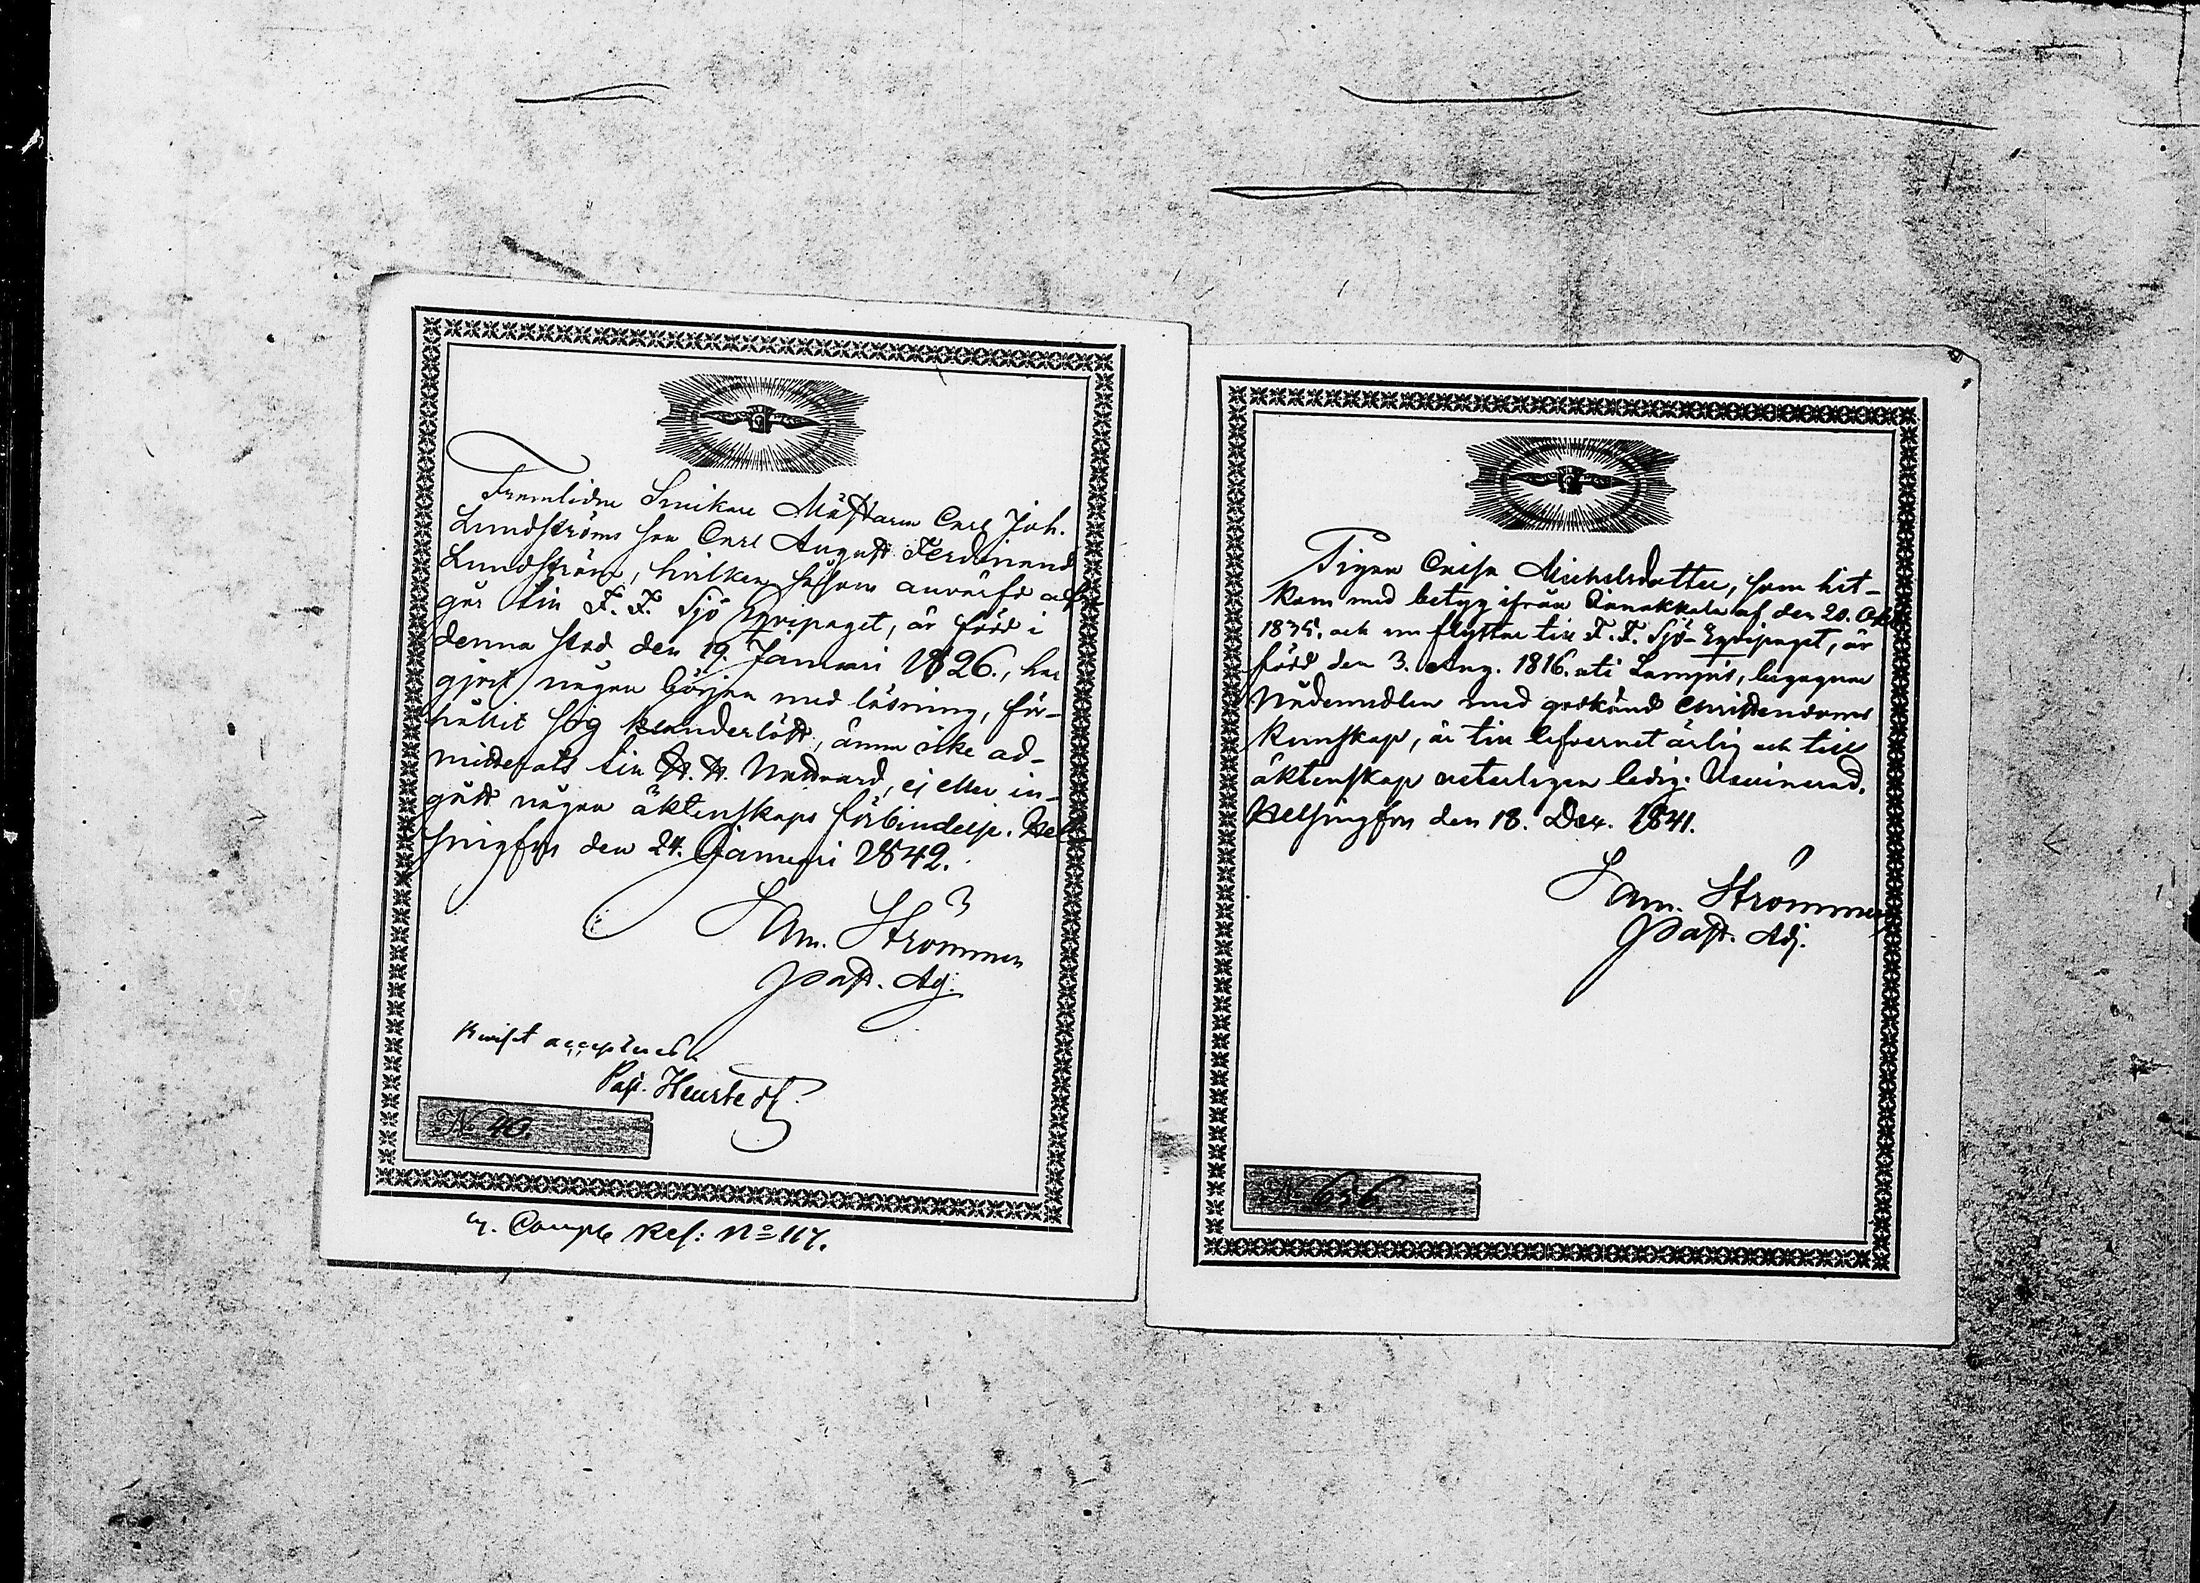 Framlidne Snikare Mästaren Carl Joh.
Lundströms son Carl August Ferdinand
Lundström, hvilken såsom anvärfd af-
går till F. F. Sjö Equipaget, är född i
denna stad den 19. Januari 1826., har
gjort någon början med läsning, för-
hållit sig klanderlöst, ännu icke ad-
mitterats till H. H. Nattvard, ej eller in-
gått någon äktenskaps förbindelse. Hel-
singfors den 24. Januari 1842.
Sam. Strömmer
Past. Adj.
accepteras
Past.
No 40.
Compt Ref: No 117.
Pigan Caisa Michelsdotter, som hit-
kom med betyg ifrån Janakkala af den 20. Oct.
1835. och nu flyttar till F. F. Sjö-Equipaget, är
född den 3. Aug. 1816. uti Lampis, begagnar
Nådemedlen med godkänd Christendoms
kunskap, är till lefvernet ärlig och till
äktenskap veterligen ledig. Vaccinerad.
Helsingfors den 18. Dec. 1841.
Sam. Strömmer
Past. Adj.
No 656.